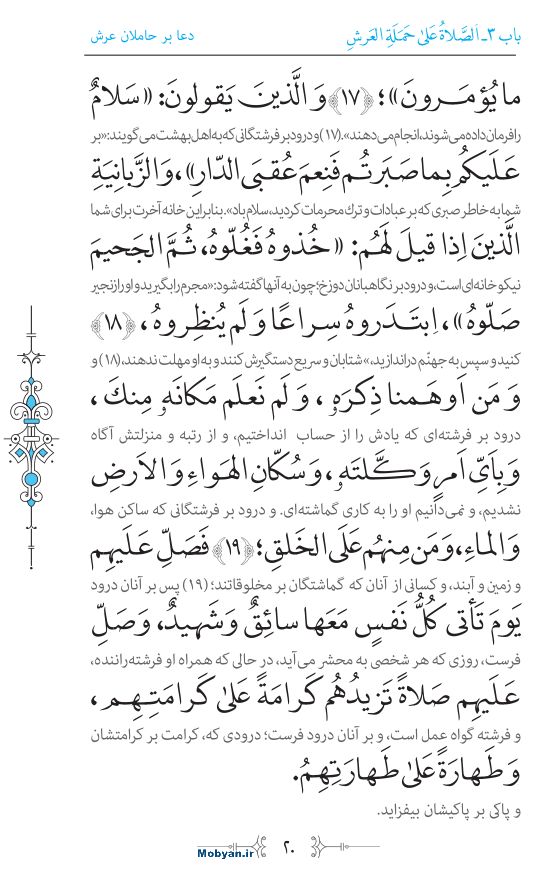 باب ۳ـ اَلصَّلاةُ عَلیٰ حَمَلَةِ العَرشِ
دعا بر حاملان عرش
ما یُؤمَرونَ»؛ ﴿۱۷﴾ وَ الَّذینَ یَقولونَ: «سَلامٌ
را فرمان داده می‌شوند، انجام می‌دهند». (۱۷) و درود بر فرشتگانی که به اهل بهشت می‌گویند: «بر
عَلَیکُم بِما صَبَرتُم فَنِعمَ عُقبَی الدّارِ»، وَ الزَّبانِیَةِ
شما به خاطر صبری که بر عبادات و ترك محرمات کردید، سلام باد». بنابراین خانه آخرت برای شما
الَّذینَ اِذا قیلَ لَهُم: «خُذوهُ فَغُلّوهُ، ثُمَّ الجَحیمَ
نیکو خانه‌ای است، و درود بر نگاهبانان دوزخ؛ چون به آنها گفته شود: «مجرم را بگیرید و او را زنجیر
صَلّوهُ»، اِبتَدَروهُ سِراعًا وَ لَم یُنظِروهُ، ﴿۱۸﴾
کنید و سپس به جهنّم دراندازید»، شتابان و سریع دستگیرش کنند و به او مهلت ندهند، (۱۸) و
وَ مَن اَوهَمنا ذِکرَهٗ، وَ لَم نَعلَم مَکانَهٗ مِنكَ،
درود بر فرشته‌ای که یادش را از حساب انداختیم، و از رتبه و منزلتش آگاه
وَ بِاَیِّ اَمرٍ وَکَّلتَهٗ، وَ سُکّانِ الهَواءِ وَ الاَرضِ
نشدیم، و نمی‌دانیم او را به کاری گماشته‌ای. و درود بر فرشتگانی که ساکن هوا،
وَ الماءِ، وَ مَن مِنهُم عَلَی الخَلقِ؛ ﴿۱۹﴾ فَصَلِّ عَلَیهِم
و زمین و آبند، و کسانی از آنان که گماشتگان بر مخلوقاتند؛ (۱۹) پس بر آنان درود
یَومَ تَأتی کُلُّ نَفسٍ مَعَها سائِقٌ وَ شَهیدٌ، وَ صَلِّ
فرست، روزی که هر شخصی به محشر می‌آید، در حالی که همراه او فرشته راننده،
عَلَیهِم صَلاةً تَزیدُهُم کَرامَةً عَلیٰ کَرامَتِهِم،
و فرشته گواه عمل است، و بر آنان درود فرست؛ درودی که، کرامت بر کرامتشان
وَ طَهارَةً عَلیٰ طَهارَتِهِمُ.
و پاکی بر پاکیشان بیفزاید.
۲۰
Mobyan.ir